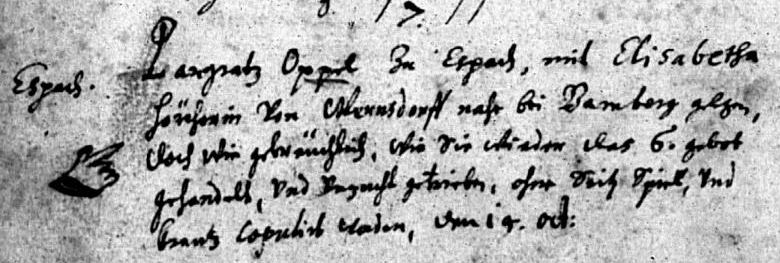 Espach.
Pangratz Oppel Zu Espach, mit Elisabetha
von Wernsdorff nahe bei Bamberg gelegen,
doch wie gebräuchlich, wie Sie wieder das 6. gebot
gehandelt, Vnd Vnzucht getrieben, ohne Spiel, Vnd
Krantz Copulirt worden, den 14. Oct: